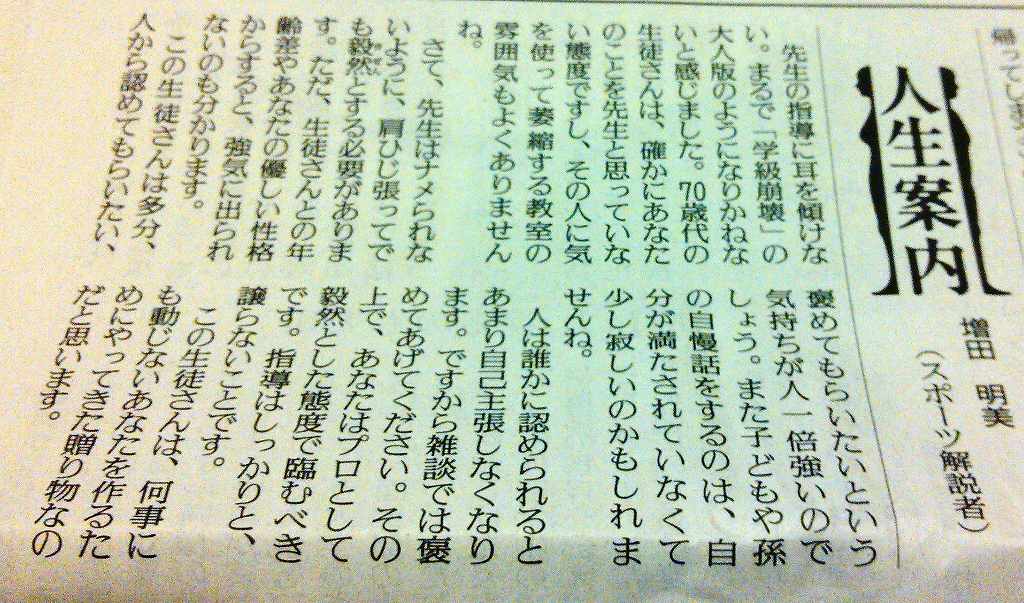 人生案内
増田 明美
（スポーツ解説者）
先生の指導に耳を傾けな
い。まるで「学級崩壊」の
大人版のようになりかねな
いと感じました。70歳代の
生徒さんは、確かにあなた
のことを先生と思っていな
い態度ですし、その人に気
を使って萎縮する教室の
雰囲気もよくありません
ね。
さて、先生はナメられな
いように、肩ひじ張ってで
も毅然とする必要がありま
す。ただ、生徒さんとの年
齢差やあなたの優しい性格
からすると、強気に出られ
ないのも分かります。
この生徒さんは多分、
人から認めてもらいたい、
褒めてもらいたいという
気持ちが人一倍強いので
しょう。また子どもや孫
の自慢話をするのは、自
分が満たされていなくて
少し寂しいのかもしれま
せんね。
人は誰かに認められると
あまり自己主張しなくなり
ます。ですから雑談では褒
めてあげてください。その
上で、あなたはプロとして
毅然とした態度で臨むべき
です。指導はしっかりと、
譲らないことです。
この生徒さんは、何事に
も動じないあなたを作るた
めにやってきた贈り物なの
だと思います。